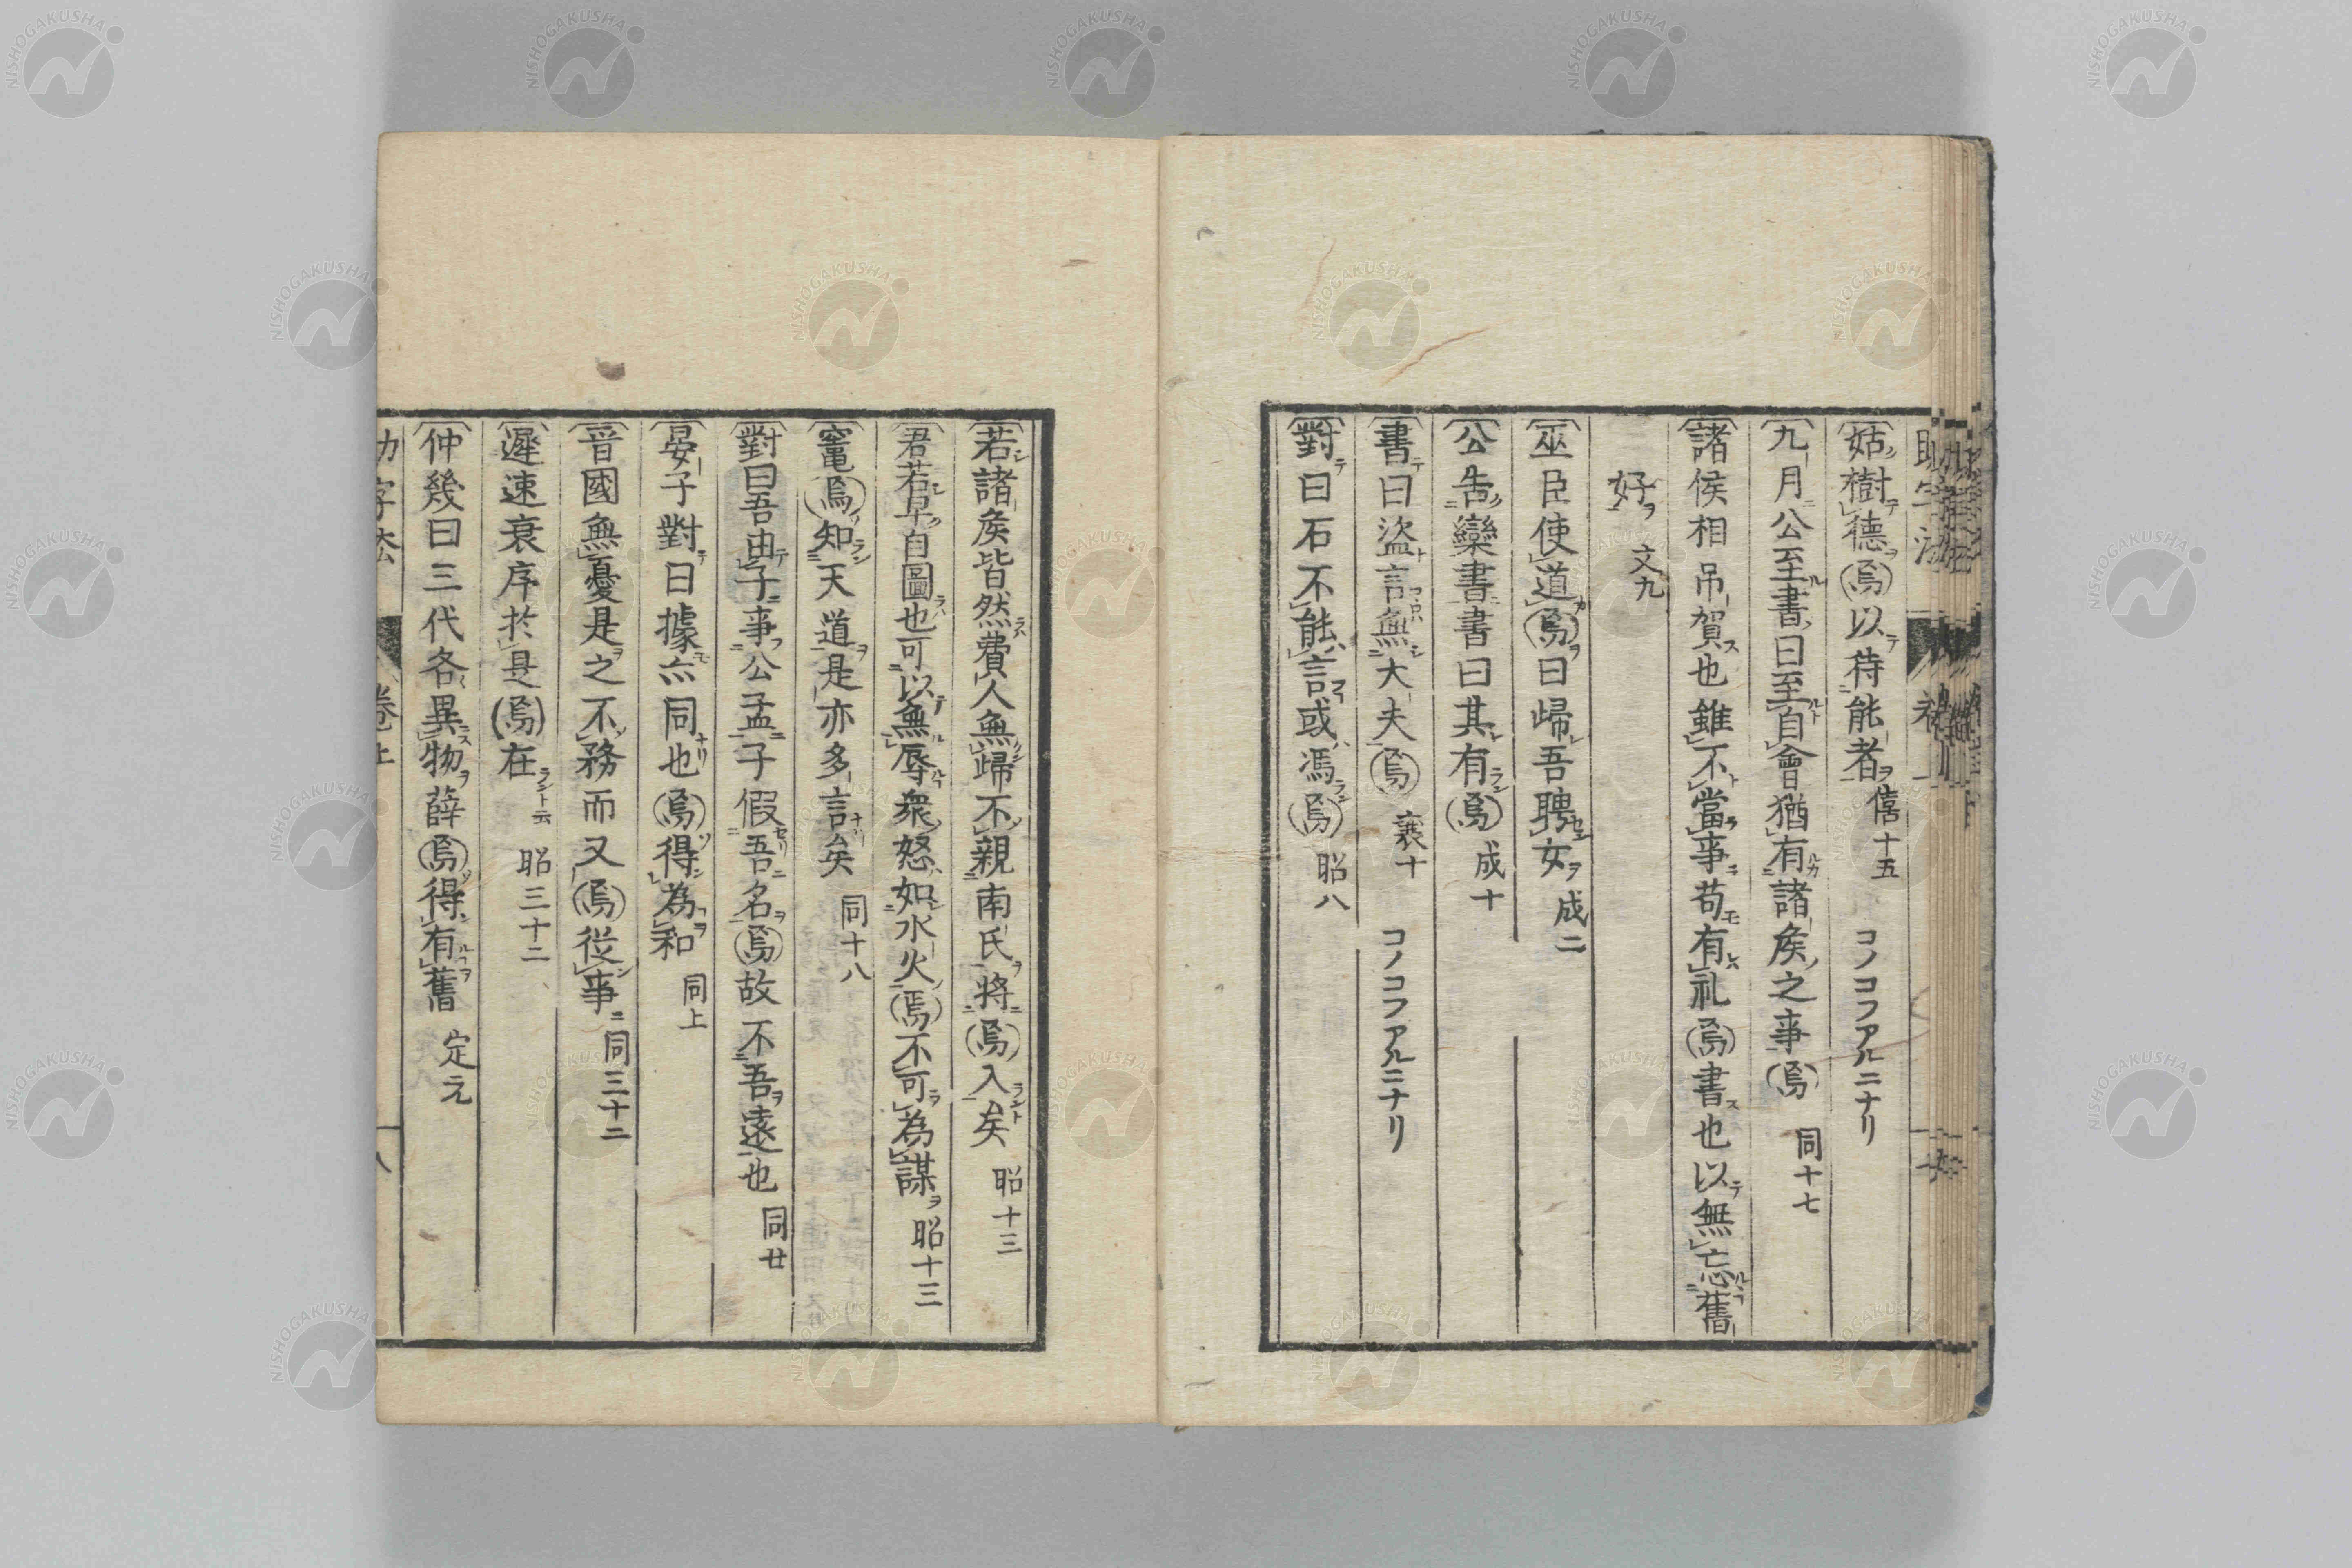 姑樹德焉以待能者 僖十五 コノコフアルニナリ
九月公至書曰至自會猶有諸矦之事焉 同十七
諸侯相吊賀也雖不當事苟有礼焉書也以無忘舊
好 文九
巫臣使道焉曰歸吾聘女 成二
公告欒書書曰其有焉 成十
書曰盜言無大夫焉 襄十 コノコフアルニナリ
對曰石不能言或馮焉 昭八
若諸矦皆然費人無歸不親南氏將焉入矣 昭十三
君若早自圖也可以無辱衆怒如水火焉不可為謀 昭十三
竈焉知天道是亦多言矣 同十八
對曰吾由子事公孟子假吾名焉故不吾遠也 同廿
晏子對曰據亦同也焉得為和 同上
晉國無憂是之不務而又焉從事 同三十二
遲速衰序於是焉在 昭三十二
仲幾曰三代各異物薛焉得有舊 定元
卷上
八
NISHOGAKUSHA